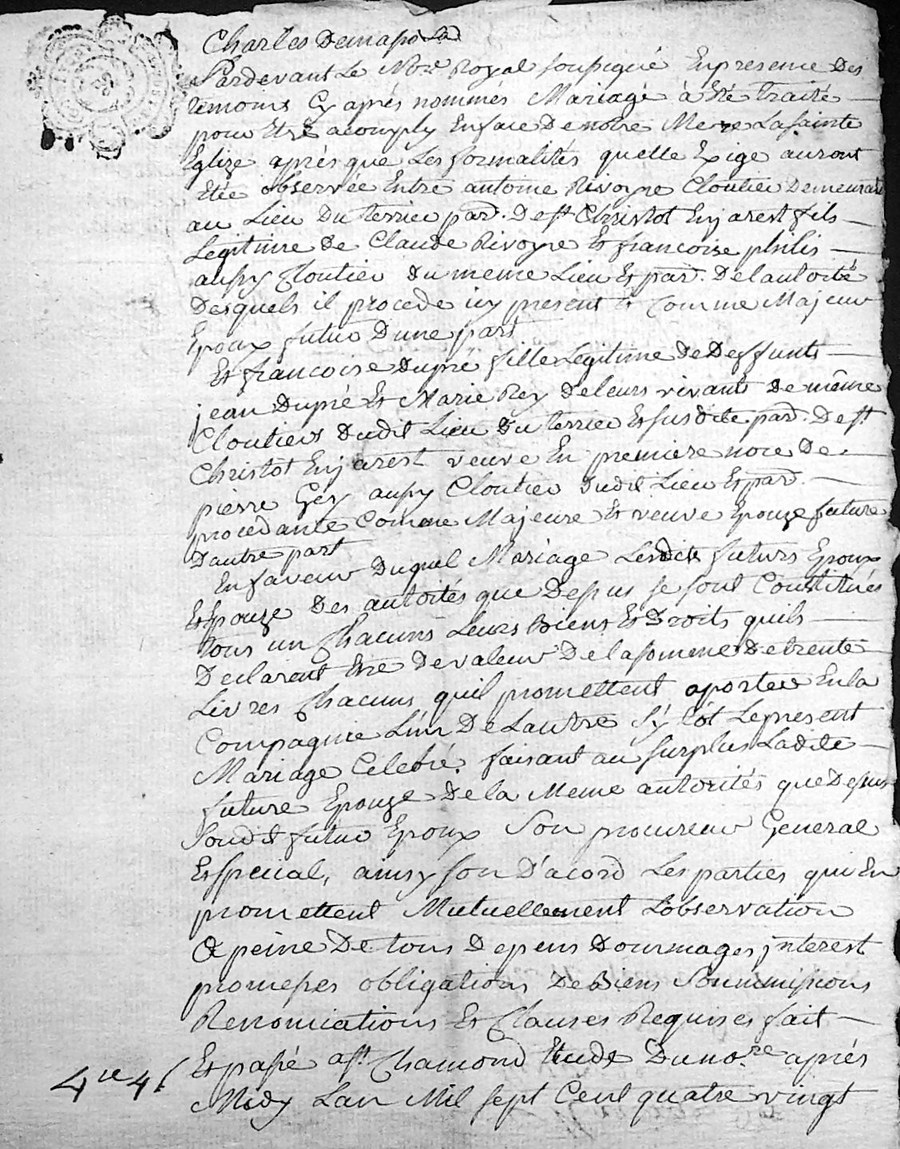 Charles Demapo
Pardevant Le No.re Royal soussigné En presence Des
temoins Cy aprés nommés Mariage à été traité
pour Etre acomply En face De notre Mere La sainte
Eglize aprés que Les formalités quelle Exige auront
Etée observée Entre antoine Rivoyre Cloutier Demeurant
au Lieu Du terrier par. De st Christot En jarest fils
Legitime de Claude Rivoyre Et francoise philis
aussy Cloutier du meme Lieu Et par. De lautorité
Desquels il procede icy present et Comme Majeur
Epoux futur Dune part
Et francoise Dupré fille Legitime De Deffunts
jean Dupré Et Marie Rey De leurs vivants De même
Cloutiers Dudit Lieu Du terrier Et susdite par. De st
Christot En jarest veuve En premiere noce De
pierre Gery aussy Cloutier Dudit Lieu Et par.
procedante Comme Majeure Et veuve Epouze future
Dautre part
En faveur Duquel Mariage Lesdits futurs Epoux
Et Epouze Des autoités que Depus se sont Constitués
tous un Chacuns Leurs Biens Et Droits quils
Declarent Etre De valeur De la somme De trente
Livres Chacuns quil promettent aporter En la
Compagnie L'un De Lautre sy tôt Le present
Mariage Celebré. faisant au surplus Ladite
future Epouze De la Meme autorités que Depus
Soudit futur Epoux Son procureur General
Et special, ainsy son D'acord Les parties qui En
promettent Mutuellement Lobservation
a peine De tous Depens Doumages interest
promesses obligations De Biens Soummissions
Renonciations Et Clauses Requises fait
Et passé a st Chamond Etude Du no.re aprés
Midy Lan Mil sept Cent quatre vingt